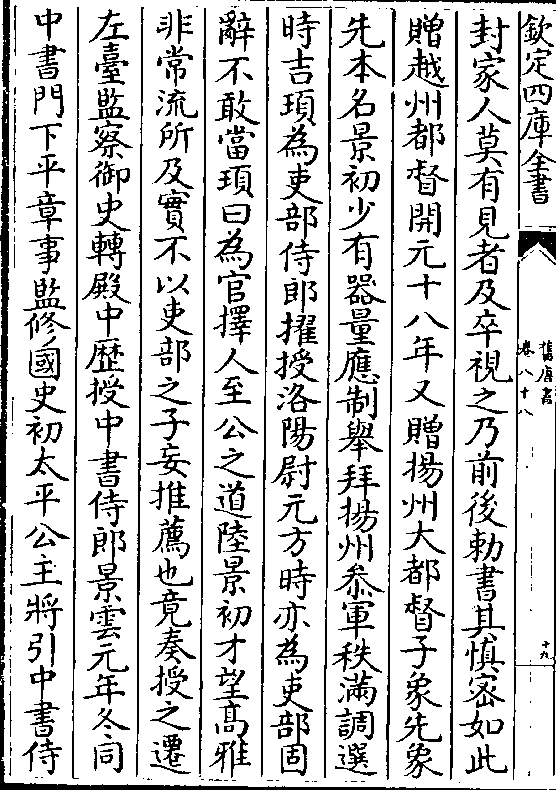 欽定四庫全書
舊唐書
卷八十八
十九
封家人莫有見者及卒視之乃前後勅書其慎密如此
贈越州都督開元十八年又贈揚州大都督子象先象
先本名景初少有器量應制舉拜揚州叅軍秩滿調選
時吉頊為吏部侍郎擢授洛陽尉元方時亦為吏部固
辭不敢當頊曰為官擇人至公之道陸景初才望髙雅
非常流所及實不以吏部之子妄推薦也竟奏授之遷
左臺監察御史轉殿中歴授中書侍郎景雲元年冬同
中書門下平章事監修國史初太平公主將引中書侍